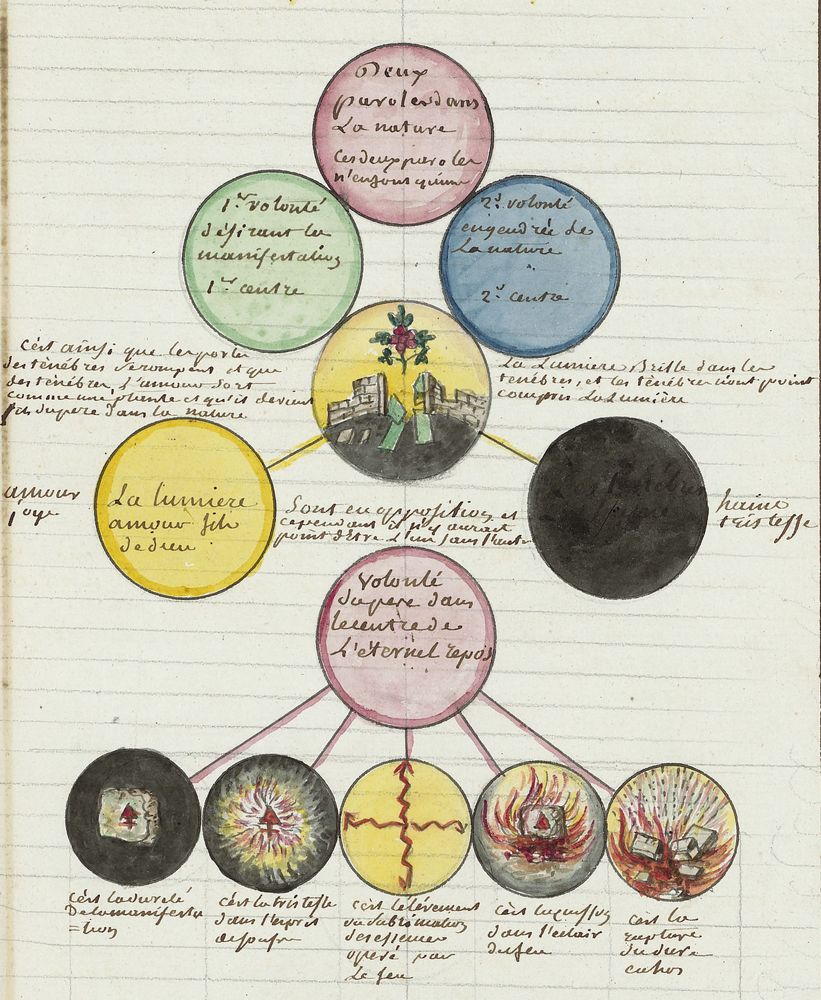 Deux
paroles dans
La nature
Ces deux paroles
n'en font qu'une
1re volonté
désirant la
manifestation
1er centre
2d volonté
engendrée de
La nature
2d centre
C'est ainsi que les portes
des ténèbres se rompent et que
des ténèbres l'amour sort
comme une plante et qu'il devient
fils du pere dans la nature
La Lumiere Brille dans les
tenèbres, et les ténèbres n'ont point
compris La Lumière
amour
joye
La lumiere
amour fils
de dieu
Sont en opposition et
cependant il n'y auroit
point d'être L'un sans l'autre
haine
tristesse
Volonté
du pere dans
le centre de
L'éternel repos
C'est la dureté
De la manifesta
=tion
C'est la tristesse
dans l'esprit
de soufre
C'est
sublimation
des essences
opéré par
Le feu
C'est
dans l'éclair
du feu
C'est la
rupture
du dure